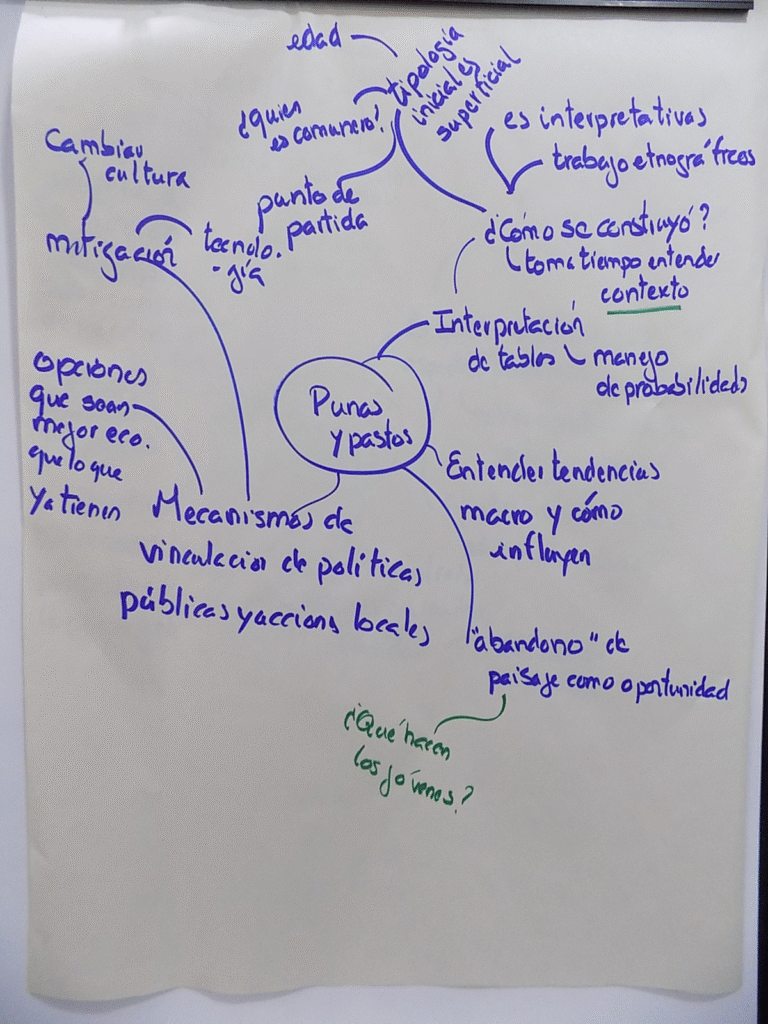 edad
tipología
iniciales
superficial
¿Quien
es comunero?
es interpretativas
trabajo etnográficos
Cambiar
cultura
punto de
partida
mitigación
tecnolo.
-gía
¿Cómo se construyó?
toma tiempo entender
contexto
Interpretación
de tablas
manejo
de probabilidades
Punas
y pastos
opciones
que sean
mejor eco.
que lo que
ya tienen
Entender tendencias
macro y cómo
influyen
Mecanismos de
vinculacion de políticas
públicas y accions locales
"abandono" de
paisaje como oportunidad
¿Qué hacen
los jóvenes?